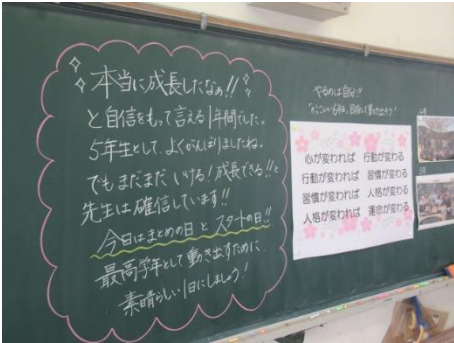 本当に成長したなぁ!!
と自信をもって言える1年間でした。
5年生として、よくがんばりましたね。
でもまだまだ いける！成長できる!!と
先生は確信しています!!
今日はまとめの日 と スタートの日!!
最高学年として動き出すために
素晴らしい1日にしましょう！
やるのは自分!!
心が変われば 行動が変わる
行動が変われば 習慣が変わる
習慣が変われば 人格が変わる
人格が変われば 運命が変わる